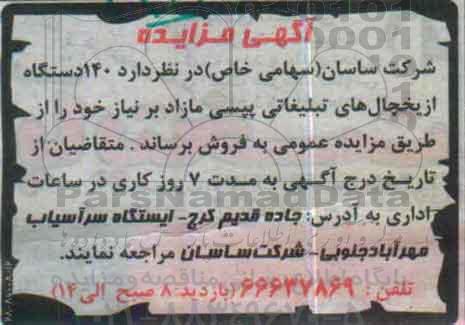 آگهی مزایده
شرکت ساسان(سهامی خاص)در نظر دارد ۱۴۰دستگاه
از یخچال‌های تبلیغاتی پپسی مازاد بر نیاز خود را از
طریق مزایده عمومی به فروش برساند . متقاضیان از
تاریخ درج آگهی به مدت ۷ روز کاری در ساعات
اداری به آدرس: جاده قدیم کرج- ایستگاه سرآسیاب
مهرآبادجنوبی- شرکت ساسان مراجعه نمایند.
تلفن : ۶۶۶۳۷۸۶۹ (بازدید ۸ صبح الی ۱۴)
ParsNamadData